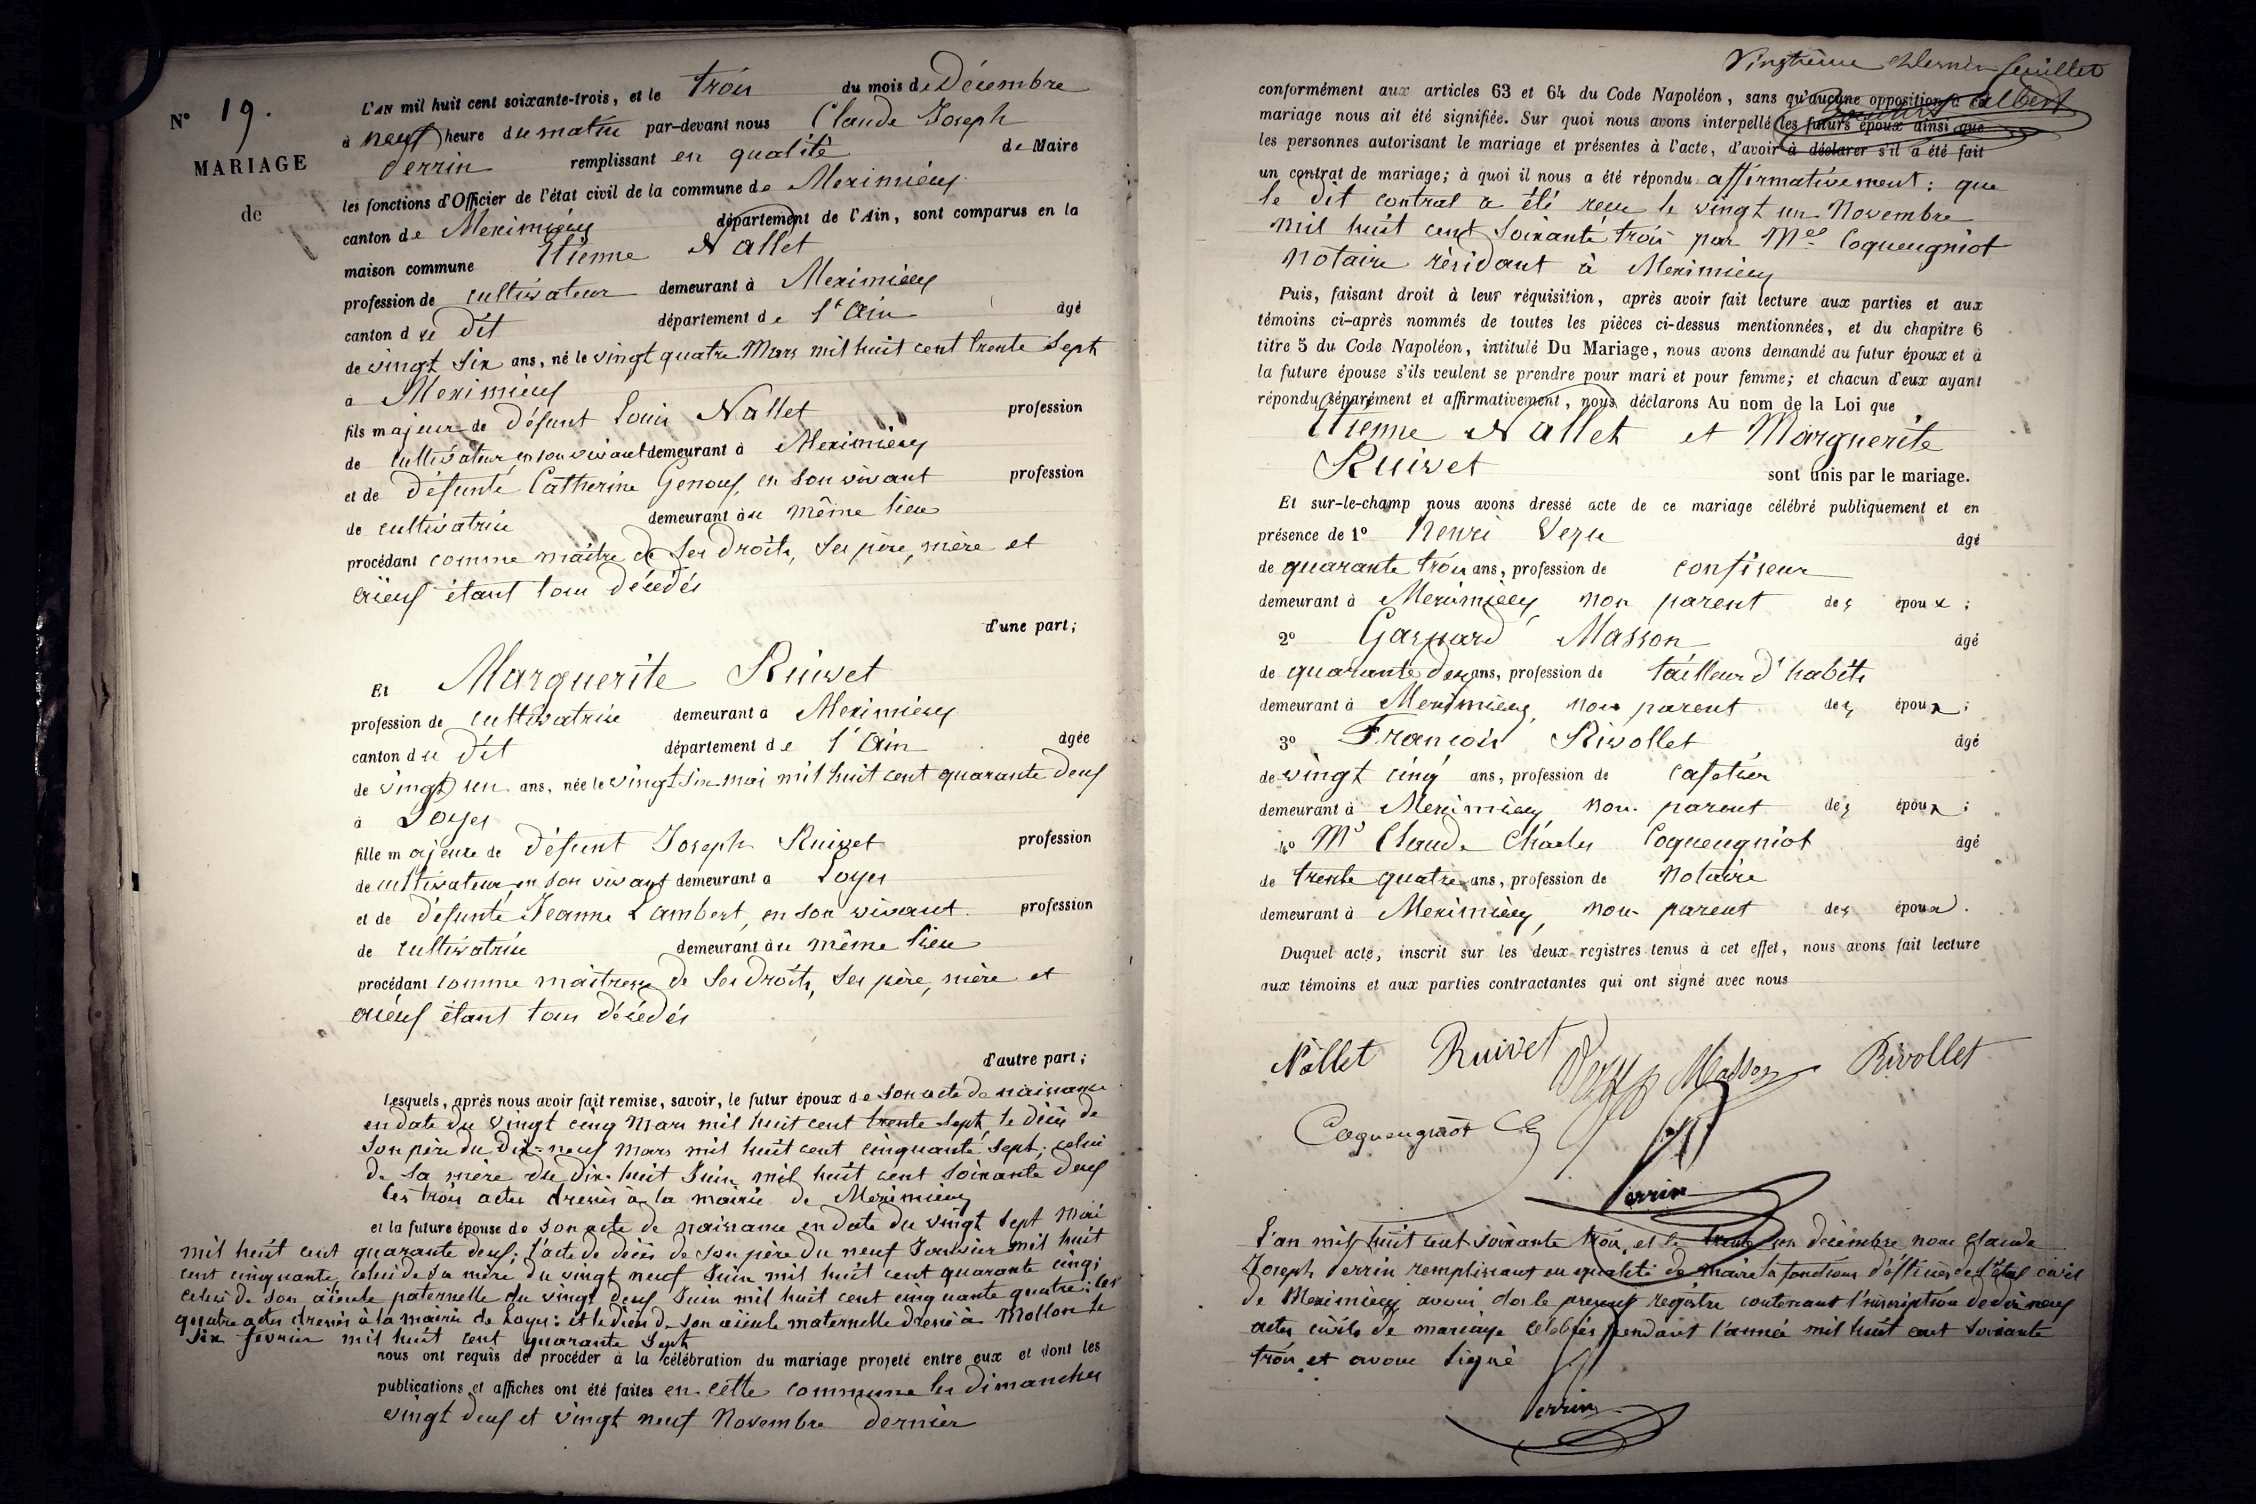 N° 19.
MARIAGE
de
L'AN mil huit cent soixante-trois, et le trois du mois de Décembre
à neuf heure du matin par-devant nous Claude Joseph
Perrin remplissant en qualité de Maire
les fonctions d'Officier de l'état civil de la commune de Meximieux
canton de Meximieux département de l'Ain, sont comparus en la
maison commune Etienne Nallet
profession de cultivateur demeurant à Meximieux
canton du dit département de l'Ain âgé
de vingt six ans, né le vingt quatre Mars mil huit cent trente sept
à Meximieux
fils majeur de défunt Louis Nallet profession
de cultivateur en son vivant demeurant à Meximieux
et de défunte Catherine Genoux, en son vivant profession
de cultivatrice demeurant au même lieu
procédant comme maître de ses droits, ses père, mère et
aïeux étant tous décédés
d'une part;
Et Marguerite Ruivet
profession de cultivatrice demeurant à Meximieux
canton du dit département de l'Ain âgée
de vingt un ans, née le vingt six mai mil huit cent quarante deux
à Loyes
fille majeure de défunt Joseph Ruivet profession
de cultivateur en son vivant demeurant à Loyes
et de défunte Jeanne Lambert, en son vivant profession
de cultivatrice demeurant au même lieu
procédant comme maitresse de ses droits, ses père, mère et
aïeux étant tous décédés
d'autre part;
Lesquels, après nous avoir fait remise, savoir, le futur époux de son acte de naissance
en date du vingt cinq Mars mil huit cent trente sept, le décès de
son père du dix-neuf mars mil huit cent cinquante sept; celui
de sa mère du dix-huit Juin mil huit cent soixante deux
les trois actes dressés à la mairie de Meximieux
et la future épouse de son acte de naissance en date du vingt sept Mai
mil huit cent quarante deux; l'acte de décès de son père du neuf Janvier mil huit
cent cinquante, celui de sa mère du vingt neuf Juin mil huit cent quarante cinq;
celui de son aïeule paternelle du vingt deux Juin mil huit cent cinquante quatre; les
quatre actes dressés à la mairie de Loyes: et le décès de son aïeule maternelle dressé à Mollon le
six fevrier mil huit cent quarante sept
nous ont requis de procéder à la célébration du mariage projeté entre eux et dont les
publications et affiches ont été faites en cette commune les dimanches
vingt deux et vingt neuf Novembre dernier
Vingtième et dernier feuillet
conformément aux articles 63 et 64 du Code Napoléon, sans qu'aucune opposition à ce
mariage nous ait été signifiée. Sur quoi nous avons interpellé les futurs époux ainsi que
les personnes autorisant le mariage et présentes à l'acte, d'avoir à déclarer s'il a été fait
un contrat de mariage; à quoi il nous a été répondu affirmativement: que
le dit contrat a été reçu le vingt un Novembre
mil huit cent soixante trois par Me Coqueugniot
notaire résidant à Meximieux
Puis, faisant droit à leur réquisition, après avoir fait lecture aux parties et aux
témoins ci-après nommés de toutes les pièces ci-dessus mentionnées, et du chapitre 6
titre 5 du Code Napoléon, intitulé Du Mariage, nous avons demandé au futur époux et à
la future épouse s'ils veulent se prendre pour mari et pour femme; et chacun d'eux ayant
répondu séparément et affirmativement, nous déclarons Au nom de la Loi que
Etienne Nallet et Marguerite
Ruivet sont unis par le mariage.
Et sur-le-champ nous avons dressé acte de ce mariage célébré publiquement et en
présence de 1° Henri Vezu âgé
de quarante trois ans, profession de confiseur
demeurant à Meximieux, non parent des époux;
2° Gaspard Masson âgé
de quarante deux ans, profession de tailleur d'habits
demeurant à Meximieux, non parent des époux;
3° François Rivollet âgé
de vingt cinq ans, profession de cafetier
demeurant à Meximieux, non parent des époux;
4° Me Claude Charles Coqueugniot âgé
de trente quatre ans, profession de Notaire
demeurant à Meximieux, non parent des époux.
Duquel acte, inscrit sur les deux registres tenus à cet effet, nous avons fait lecture
aux témoins et aux parties contractantes qui ont signé avec nous
Nallet Ruivet Masson Rivollet
Coqueugniot
Perrin
L'an mil huit cent soixante trois, et le trente un décembre nous Claude
Joseph Perrin remplissant en qualité de maire les fonctions d'officier de l'état civil
de Meximieux avons clos le present registre contenant l'inscription de dix neuf
actes civils de mariage célébrés pendant l'année mil huit cent soixante
trois et avons signé
Perrin